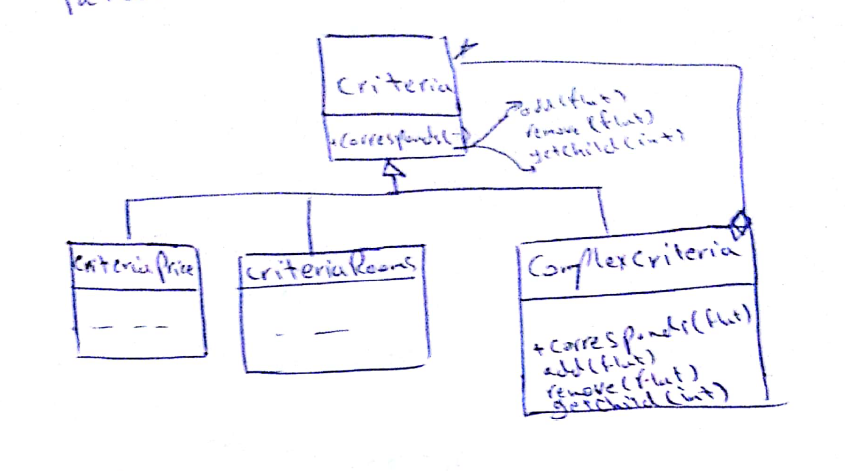 Criteria
+corresponds(-)
add(flat)
remove(flat)
getChild(int)
CriteriaPrice
CriteriaRooms
ComplexCriteria
+corresponds(flat)
add(flat)
remove(flat)
getChild(int)